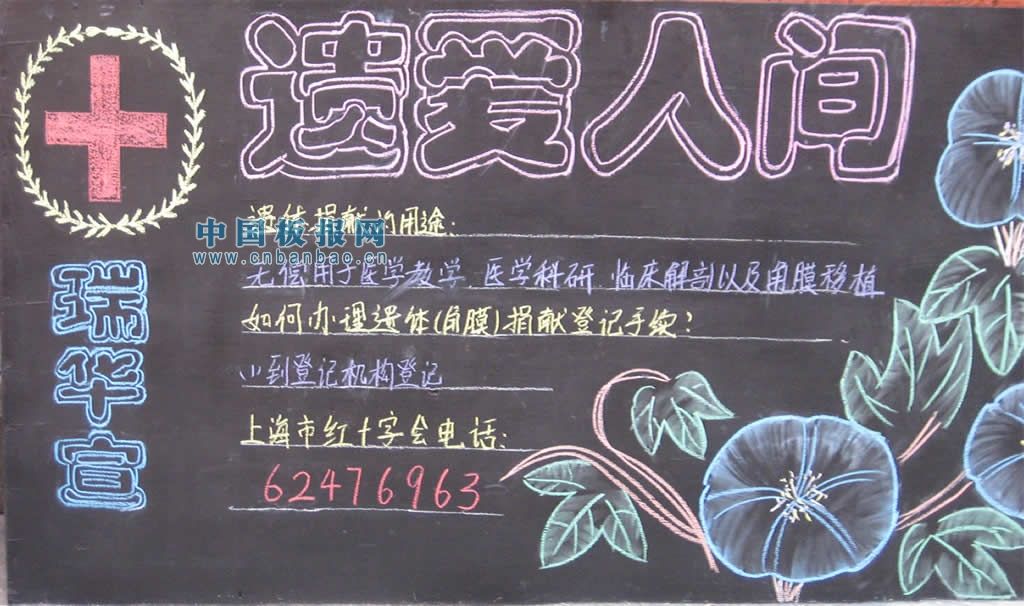 遗爱人间
遗体捐献的用途:
中国板报网
www.cnbanbao.cn
无偿用于医学教学.医学科研.临床解剖以及角膜移植
如何办理遗体(角膜)捐献登记手续?
(1)到登记机构登记
上海市红十字会电话:
62476963
瑞华宣